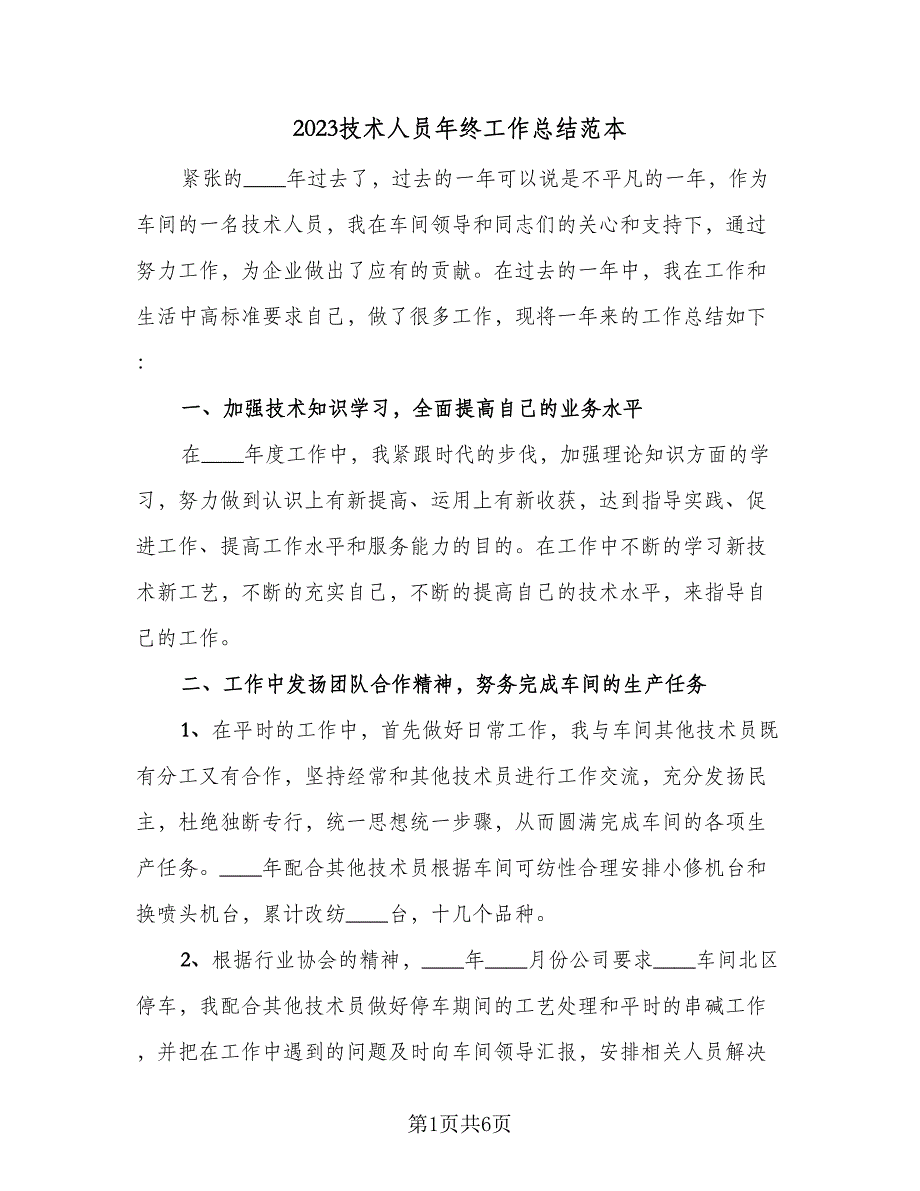 2023技术人员年终工作总结范本
紧张的____年过去了，过去的一年可以说是不平凡的一年，作为
车间的一名技术人员，我在车间领导和同志们的关心和支持下，通过
努力工作，为企业做出了应有的贡献。在过去的一年中，我在工作和
生活中高标准要求自己，做了很多工作，现将一年来的工作总结如下
：
一、加强技术知识学习，全面提高自己的业务水平
在____年度工作中，我紧跟时代的步伐，加强理论知识方面的学
习，努力做到认识上有新提高、运用上有新收获，达到指导实践、促
进工作、提高工作水平和服务能力的目的。在工作中不断的学习新技
术新工艺，不断的充实自己，不断的提高自己的技术水平，来指导自
己的工作。
二、工作中发扬团队合作精神，努务完成车间的生产任务
1、在平时的工作中，首先做好日常工作，我与车间其他技术员既
有分工又有合作，坚持经常和其他技术员进行工作交流，充分发扬民
主，杜绝独断专行，统一思想统一步骤，从而圆满完成车间的各项生
产任务。____年配合其他技术员根据车间可纺性合理安排小修机台和
换喷头机台，累计改纺____台，十几个品种。
2、根据行业协会的精神，____年____月份公司要求____车间北区
停车，我配合其他技术员做好停车期间的工艺处理和平时的串碱工作
，并把在工作中遇到的问题及时向车间领导汇报，安排相关人员解决
第1页共6页